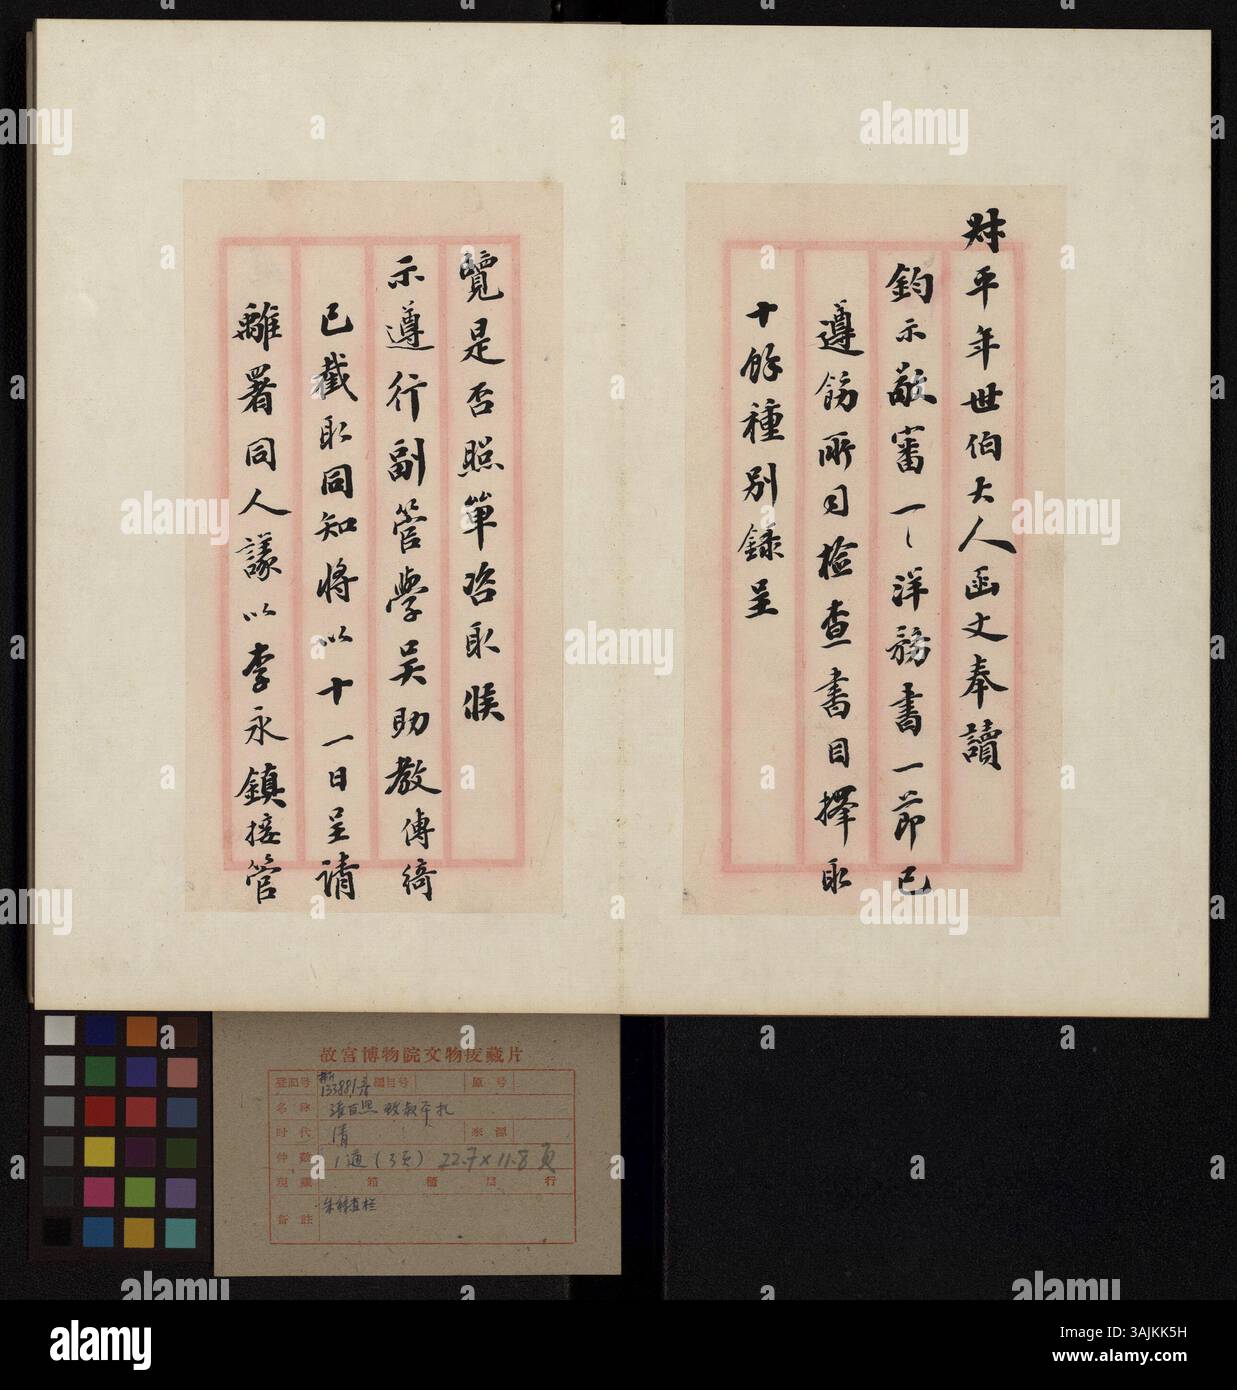 叔平年世伯大人函丈奉讀
鈞示敬審一一洋務書一節已
遵飭所司檢查書目擇取
十餘種別錄呈
覽是否照單咨取候
示遵行副管學吳助教傳綺
已截取同知將以十一日呈請
離署同人議以李永鎮接管
故宮博物院文物庋藏片
登記号 新133881
編目号
原号
名称 張百熙致叔平札
时代 清
来源
件数 1通(3页) 22.7×11.8 頁
現藏 箱 櫃 層 行
备註 朱絲直栏
alamy
a
alamy
Image ID: 3AJKK5H
www.alamy.com